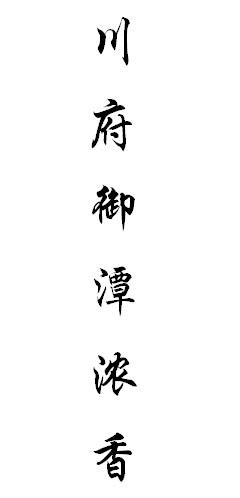 川府御潭浓香